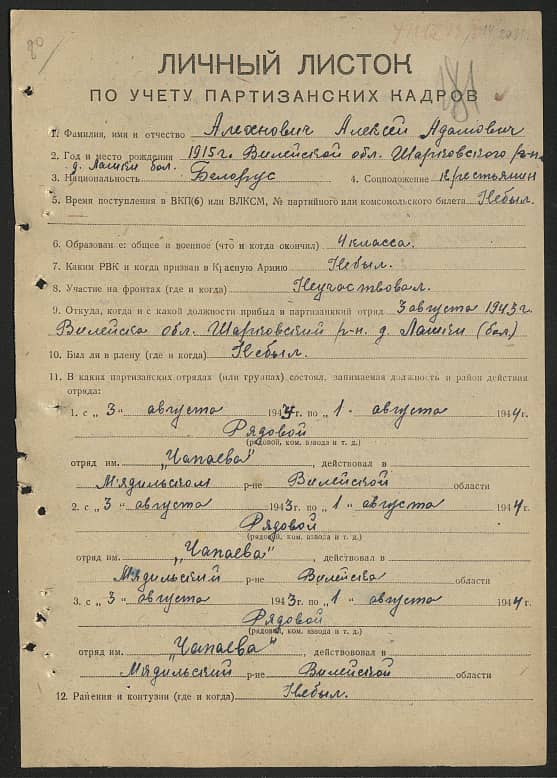 ЛИЧНЫЙ ЛИСТОК
ПО УЧЕТУ ПАРТИЗАНСКИХ КАДРОВ
1. Фамилия, имя и отчество Алехнович Алексей Адамович
2. Год и место рождения 1915г. Вилейской обл. Шарковского р-н
д. Лашки бол.
3. Национальность Белорус 4. Соцположение Крестьянин
5. Время поступления в ВКП(б) или ВЛКСМ, № партийного или комсомольского билета Небыл.
6. Образование: общее и военное (что и когда окончил) 4 класса.
7. Каким РВК и когда призван в Красную Армию Небыл.
8. Участие на фронтах (где и когда) Неучаствовал.
9. Откуда, когда и с какой должности прибыл в партизанский отряд 3 августа 1943г.
Вилейска обл. Шарковский р-н. д. Лашки (бол)
10. Был ли в плену (где и когда) Небыл.
11. В каких партизанских отрядах (или группах) состоял, занимаемая должность и район действия
отряда:
1. с „ 3 “ августа 1943г. по „ 1 “ августа 1944г.
Рядовой
(рядовой, ком. взвода и т. д.)
отряд им. „Чапаева“, действовал в
Мядильском р-не Вилейской области
2. с „ 3 “ августа 1943г. по „ 1 “ августа 1944г.
Рядовой
(рядовой, ком. взвода и т. д.)
отряд им. „Чапаева“, действовал в
Мядильский р-не Вилейска области
3. с „ 3 “ августа 1943г. по „ 1 “ августа 1944г.
Рядовой
(рядовой, ком. взвода и т. д.)
отряд им. „Чапаева“, действовал в
Мядильский р-не Вилейской области
12. Ранения и контузии (где и когда) Небыл.